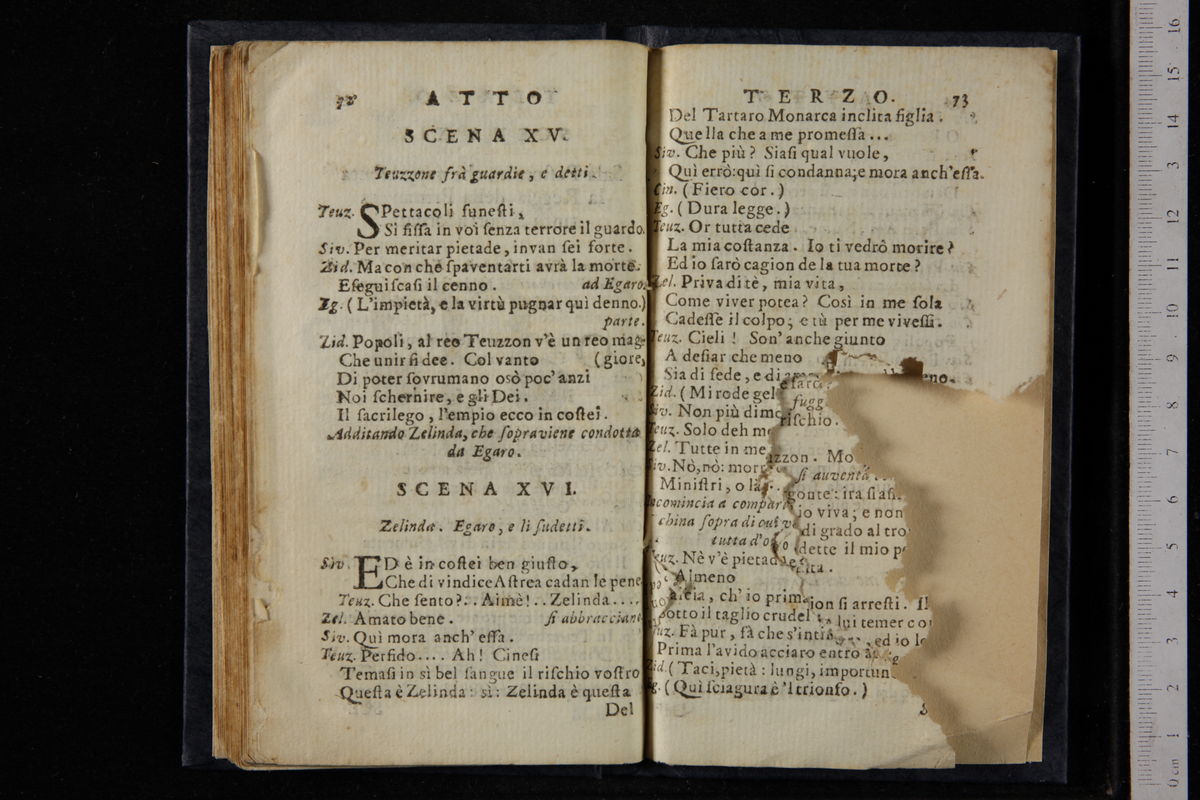 ATTO
SCENA XV.
Teuzzone frà guardie, e detti.
Teuz. SPettacoli funeſti,
Sì fiſſa in voi ſenza terrore il guardo.
Siv. Per meritar pietade, invan ſei forte.
Zid. Ma con che ſpaventarti avrà la morte.
Eſeguiſcaſi il cenno. ad Egaro.
Eg. (L'impietà, e la virtù pugnar quì denno.)
parte.
Zid. Popoli, al reo Teuzzon v'è un reo mag-
Che unir ſi dee. Col vanto (giore,
Di poter ſovrumano osò poc' anzi
Noi ſchernire, e gli Dei.
Il ſacrilego, l'empio ecco in coſtei.
Additando Zelinda, che ſopraviene condotta
da Egaro.
SCENA XVI.
Zelinda. Egaro, e li ſudetti.
Siv. ED è in coſtei ben giuſto,
Che di vindice Aſtrea cadan le pene
Teuz. Che ſento?.. Aimè!.. Zelinda....
Zel. Amato bene. ſi abbracciano
Siv. Quì mora anch' eſſa.
Teuz. Perfido.... Ah! Cineſi
Temaſi in sì bel ſangue il riſchio voſtro
Queſta è Zelinda: sì: Zelinda è queſta
Del
TERZO. 73
Del Tartaro Monarca inclita figlia.
Quella che a me promeſſa...
Siv. Che più? Siaſi qual vuole,
Quì errò: quì ſi condanna; e mora anch'eſſa.
Cin. (Fiero cor.)
Eg. (Dura legge.)
Teuz. Or tutta cede
La mia coſtanza. Io ti vedrò morire?
Ed io farò cagion de la tua morte?
Zel. Priva di tè, mia vita,
Come viver potea? Così in me ſola
Cadeſſe il colpo; e tù per me viveſſi.
Teuz. Cieli! Son' anche giunto
A deſiar che meno
Sia di fede, e di
Zid. (Mi rode gel
fugg
Siv. Non più dimo
riſchio.
Teuz. Solo deh m
Zel. Tutte in me
zzon. Mo
Siv. Nò, nò: mor
ſi auventa
Miniſtri, o là
gonte: ira ſi aſ
comincia a compar
io viva; e non
china ſopra di cui v
di grado al tro
tutta d'o
dette il mio p
Teuz. Nè v'è pietad
Almeno
ch' io prim
ion ſi arreſti. Il
otto il taglio crudel
lui temer co
Teuz. Fà pur, fà che s'inti
ed io l
Prima l'avido acciaro entro
Zid. (Taci, pietà: lungi, importun
Eg. (Qui ſciagura è 'l trionfo.)
0 cm 1 2 3 4 5 6 7 8 9 10 11 12 13 14 15 16